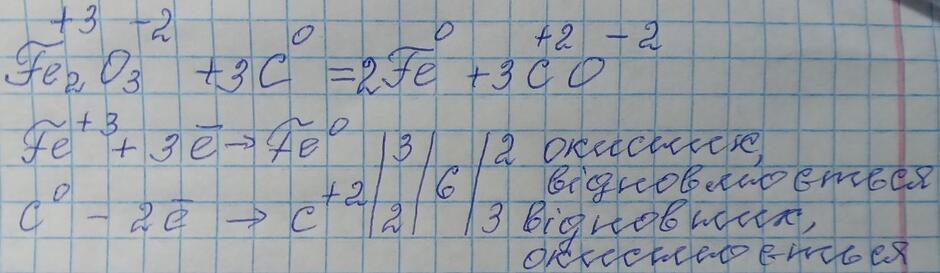 +3 -2 0 0 +2 -2
Fe₂O₃ + 3C = 2Fe + 3CO
Fe⁺³ + 3ē → Fe⁰ | 3 | | 2 окисник,
6 відновлюється
C⁰ - 2ē → C⁺² | 2 | | 3 відновник,
окислюється